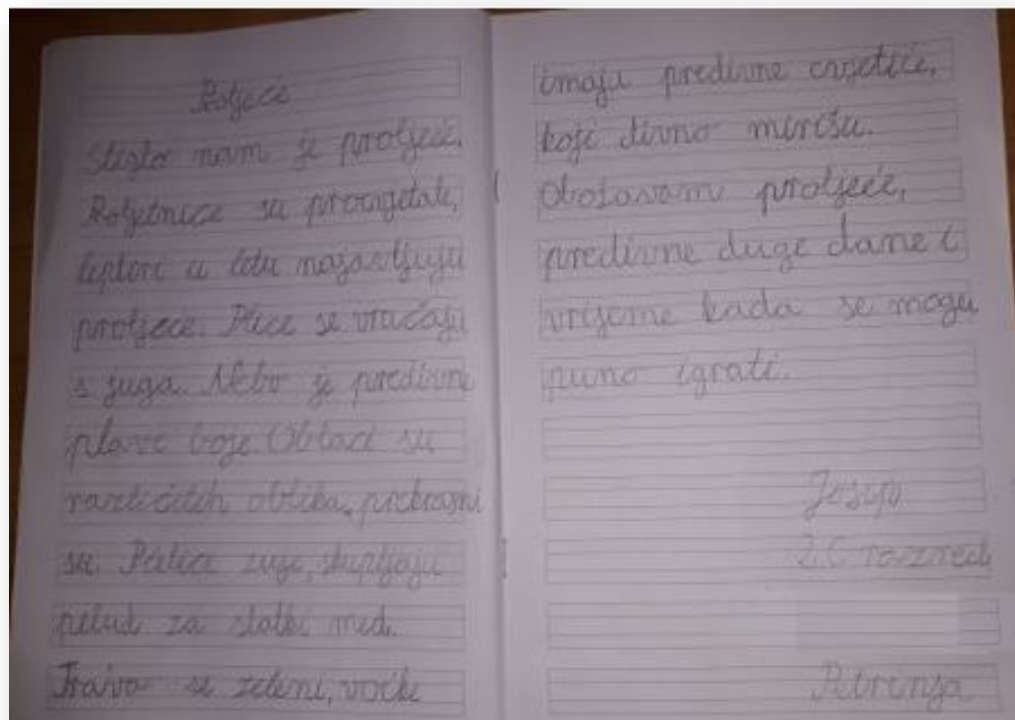 Proljeće
Stiglo nam je proljeće.
Proljetnice su procvjetale,
leptiri u letu najavljuju
proljeće. Ptice se vraćaju
s juga. Nebo je predivne
plave boje. Oblaci su
različitih oblika, prekrasni
su. Pčelice zuje, skupljaju
pelud za slatki med.
Trava se zeleni, voćke
imaju predivne cvjetiće,
koji divno mirišu.
Obožavam proljeće,
predivne duge dane i
vrijeme kada se mogu
puno igrati.
Josip
2.C razred
Petrinja